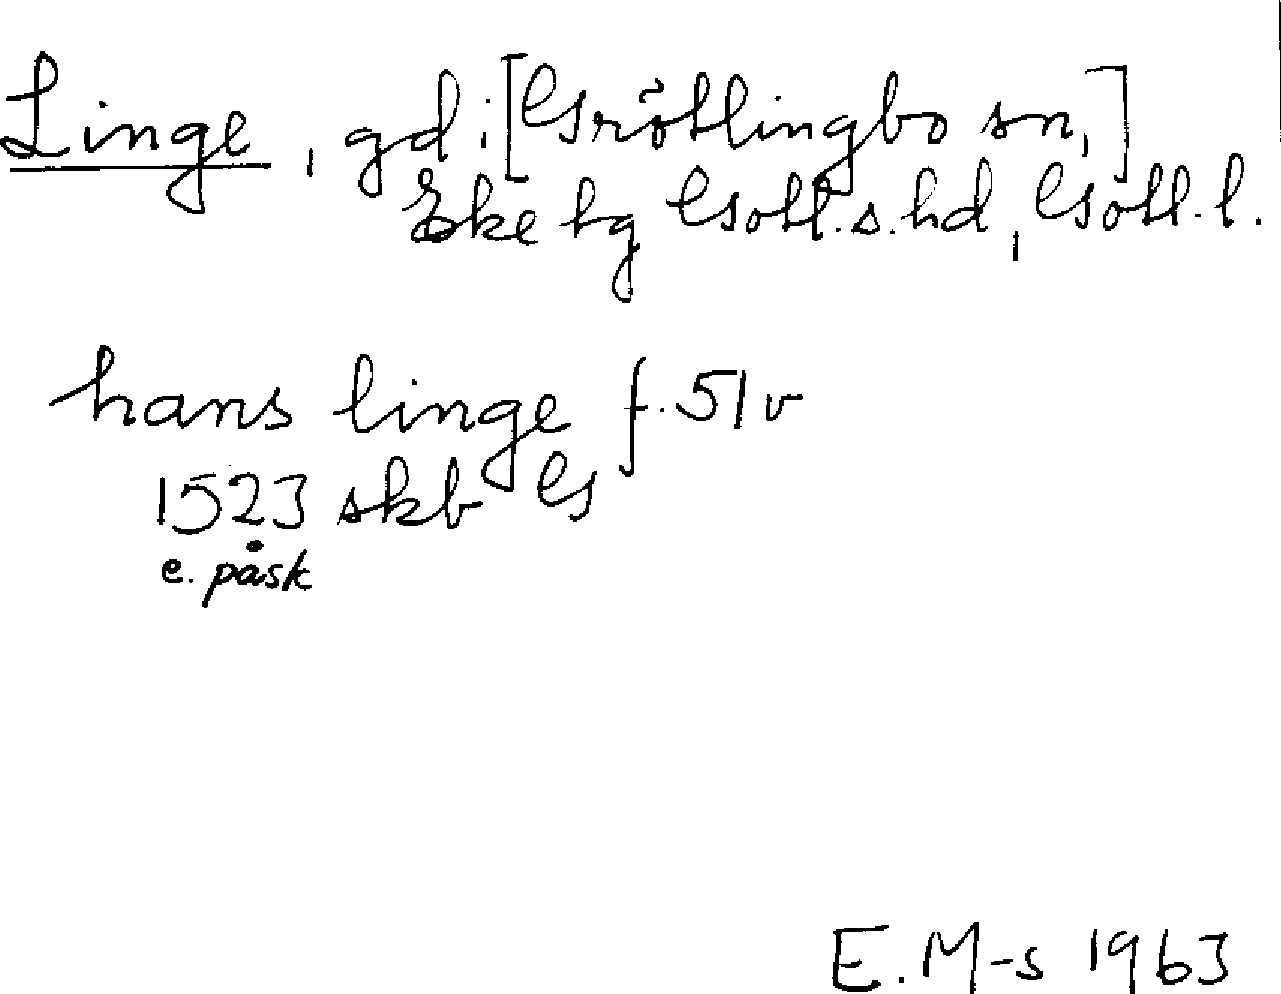 Linge, gd, [Grötlingbo sn,]
Eke tg Gotl. s. hd, Gotl. l.
hans linge f. 51 v
1523 skb G
e. påsk
E. M-s 1963